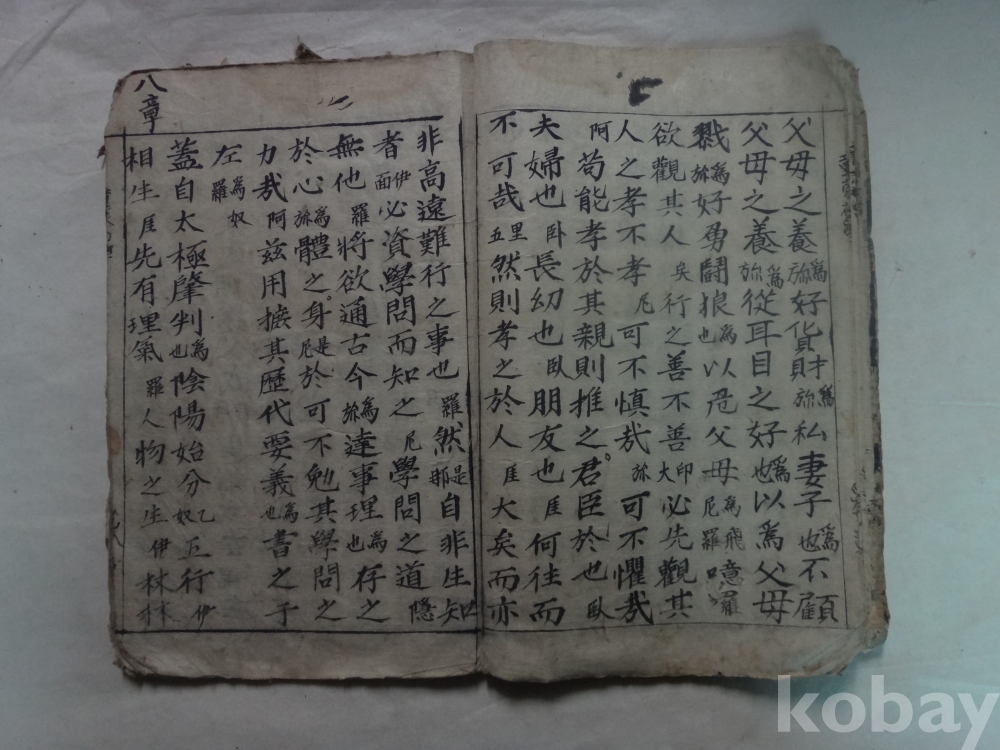 父母之養弥爲好貨財弥爲私妻子也爲不顧
父母之養弥爲從耳目之好也爲以爲父母
戮弥爲好勇鬪狼也爲以危父母尼羅爲飛噫羅
欲觀其人矣行之善不善大印必先觀其
人之孝不孝尼可不慎哉弥可不懼哉
阿苟能孝於其親則推之君臣於也臥
夫婦也臥長幼也臥朋友也厓何往而
不可哉五里然則孝之於人厓大矣而亦
非高遠難行之事也羅然那是自非生知
者面伊必資學問而知之尼學問之道隱
無他羅將欲通古今弥爲達事理也爲存之
於心弥爲體之身尼是於可不勉其學問之
力哉阿茲用摭其歷代要義也爲書之于
左羅爲奴
蓋自太極肇判也爲陰陽始分奴乙五行伊
相生厓先有理氣羅人物之生伊林林
八章
kobay